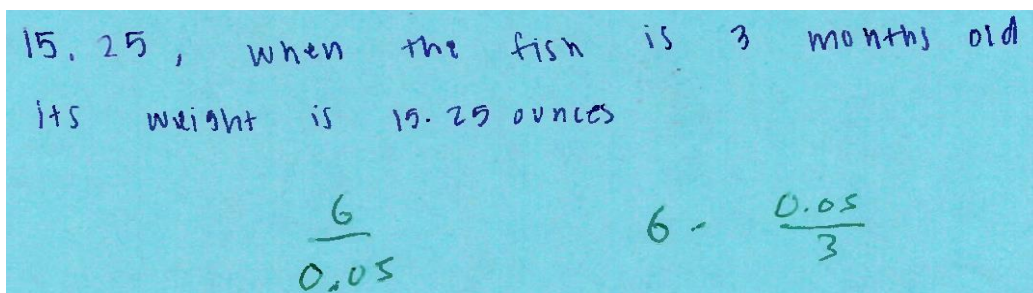 15.25, when the fish is 3 months old
its weight is 15.25 ounces
6/0.05 6 - 0.05/3